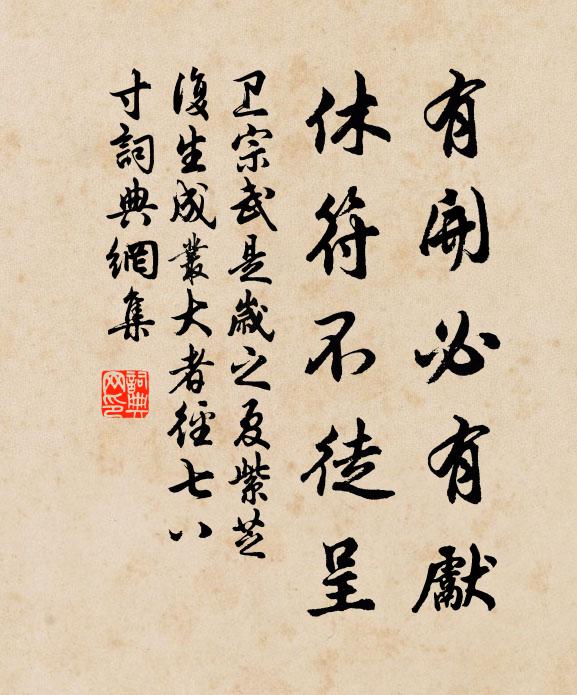 有開必有獻
休符不徒呈
卫宗武是歲之夏紫芝
復生成叢大者徑七八
寸詞典網集
詞典
网印